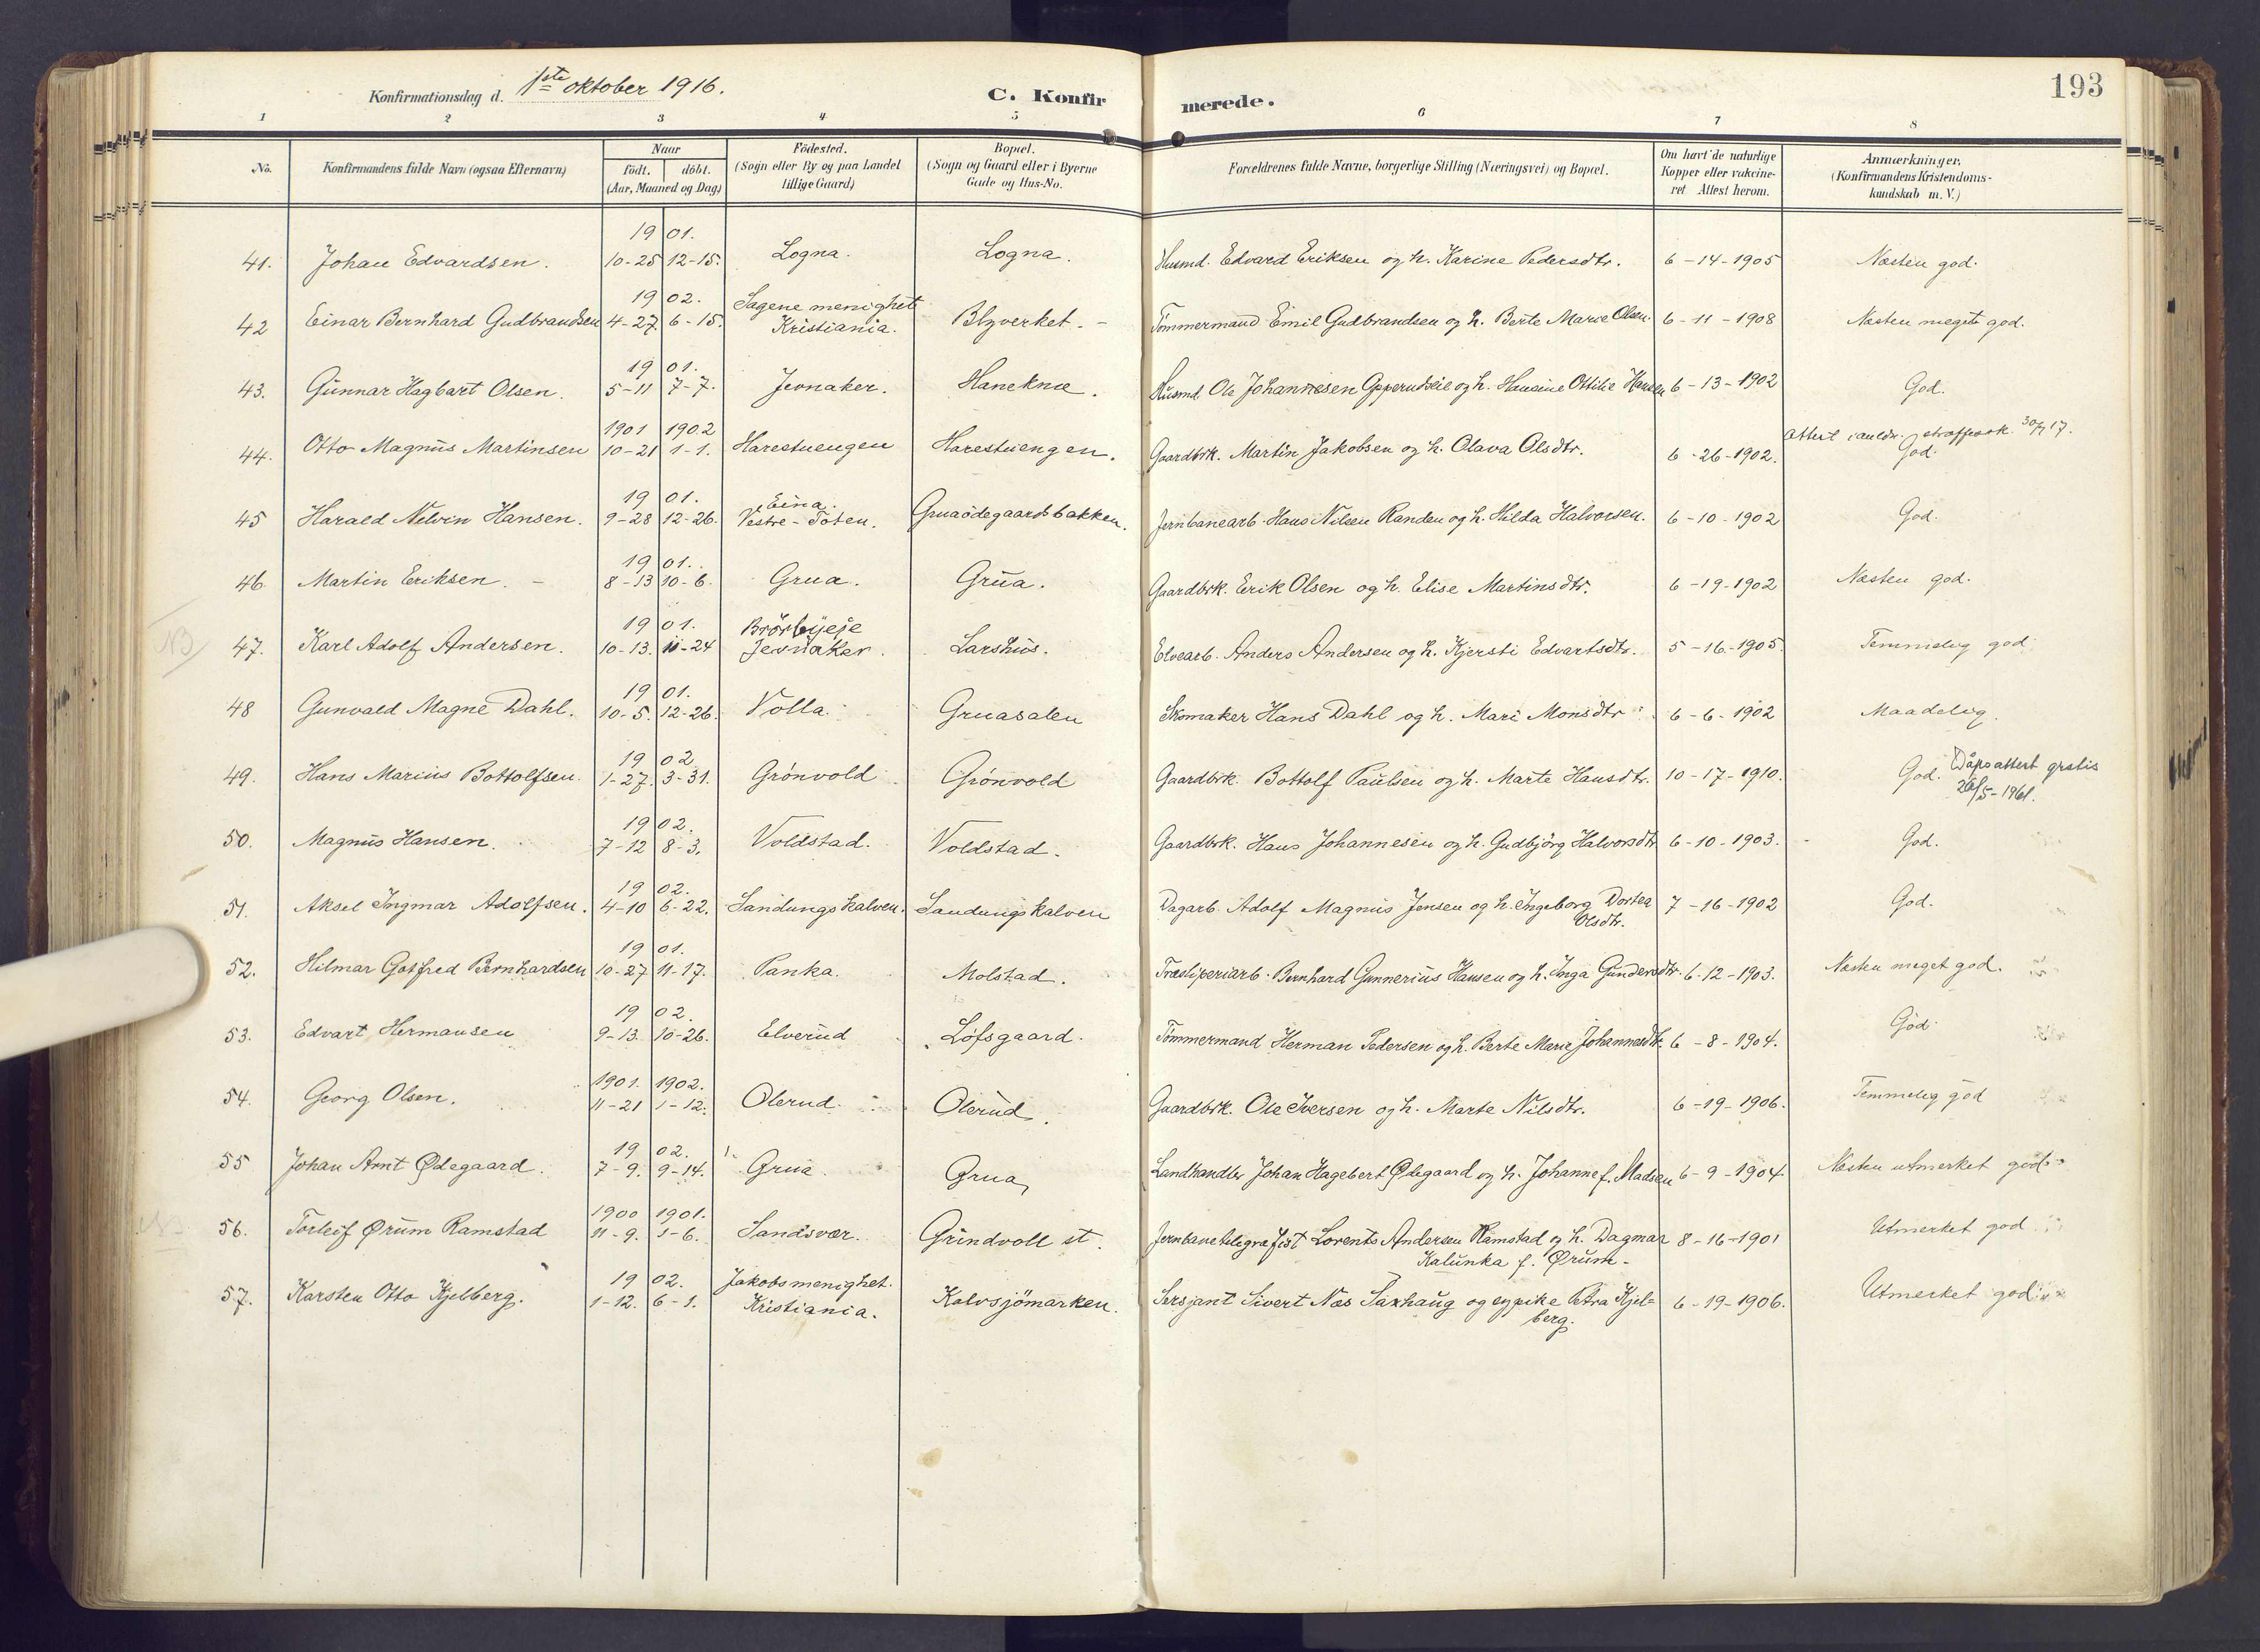 193
Konfirmationsdag d. 1ste oktober 1916.
C. Konfirmerede.
1 2 3 4 5 6 7 8
No.
Konfirmandens fulde Navn (ogsaa Efternavn)
Naar
født. døbt.
(Aar, Maaned og Dag)
Fødested.
(Sogn eller By og paa Landet
tillige Gaard)
Bopæl.
(Sogn og Gaard eller i Byerne
Gade og Hus-No.
Forældrenes fulde Navne, borgerlige Stilling (Næringsvei) og Bopæl.
Om havt de naturlige
Kopper eller vakcine-
ret Attest herom.
Anmærkninger.
(Konfirmandens Kristendoms-
kundskab m.V.)
1901.
41. Johan Edvardsen. 10-25 12-15. Logna. Logna. Husmd. Edvard Eriksen og h. Karine Pedersdtr. 6-14-1905 Næsten god.
1902. Sagene menighet
42 Einar Bernhard Gudbrandsen 4-27. 6-15. Kristiania. Blyverket. Tømmermand Emil Gudbrandsen og h. Berte Marie Olsen. 6-11-1908 Næsten meget god.
1901.
43. Gunnar Hagbart Olsen. 5-11 7-7. Jevnaker. Hanekne. Husmd. Ole Johannesen og h. Hansine Ottilie Hansen 6-13-1902 God.
1901 1902 straffesak. 30/7 17.
44. Otto Magnus Martinsen 10-21 1-1. Harestuengen Harestuengen. Gaardbrk. Martin Jakobsen og h. Olava Olsdtr. 6-26-1902. God.
1901. Eina.
45 Harald Nelvin Hansen. 9-28 12-26. Vestre-Toten. Gruaødegaardsbakken. Jernbanearb. Hans Nilsen Randen og h. Hilda Halvorsen. 6-10-1902 God.
1901.
46 Martin Eriksen. 8-13 10-6. Grua. Grua. Gaardbrk. Erik Olsen og h. Elise Martinsdtr. 6-19-1902 Næsten god.
1901. Brørbyeje
NB 47. Karl Adolf Andersen. 10-13. 11-24 Jevnaker. Larshus. Elvearb. Anders Andersen og h. Kjersti Edvartsdtr. 5-16-1905. Temmelig god
1901.
48 Gunvald Magne Dahl. 10-5. 12-26. Volla. Gruasalen Skomaker Hans Dahl og h. Mari Monsdtr 6-6-1902 Maadelig.
1902
49. Hans Marius Bottolfsen. 1-27. 3-31. Grønvold Grønvold Gaardbrk. Bottolf Paulsen og h. Marte Hansdtr. 10-17-1910. God. Dåpsattest gratis
26/5-1961.
1902.
50. Magnus Hansen. 7-12 8-3. Voldstad. Voldstad. Gaardbrk. Hans Johannesen og h. Gudbjørg Halvorsdtr 6-10-1903. God.
1902.
51. Aksel Ingmar Adolfsen. 4-10 6-22. Sandungskalven. Sandungskalven Dagarb. Adolf Magnus Jensen og h. Ingeborg Dortea 7-16-1902 God.
Olsdtr.
1901.
52. Hilmar Gotfred Bernhardsen 10-27 11-17. Panka. Molstad. Træsliperiarb. Bernhard Gunnerius Hansen og h. Inga Gundersdtr. 6-12-1903. Næsten meget god.
1902.
53. Edvart Hermansen 9-13. 10-26. Elverud Løfsgaard. Tømmermand Herman Pedersen og h. Berte Marie Johannesdtr. 6-8-1904. God.
1901. 1902.
54. Georg Olsen. 11-21 1-12. Olerud. Olerud. Gaardbrk. Ole Iversen og h. Marte Nilsdtr. 6-19-1906. Temmelig god
1902.
55 Johan Arnt Ødegaard. 7-9. 9-14. Grua. Grua Landhandler Johan Hagebert Ødegaard og h. Johanne f. Madsen 6-9-1904. Næsten utmerket god
1900 1901.
NB 56. Torleif Ørum Ramstad 11-9. 1-6. Sandsvær. Grindvoll st. Jernbanetelegrafist Lorents Andersen Ramstad og h. Dagmar 8-16-1901 Utmerket god
Kalunka f. Ørum.
1902. Jakobs menighet.
57. Karsten Otto Kjelberg. 1-12. 6-1. Kristiania. Kalvsjømarken. Sersjant Sivert Næs Saxhaug og ep. pike Petra Kjel= 6-19-1906. Utmerket god.
berg.